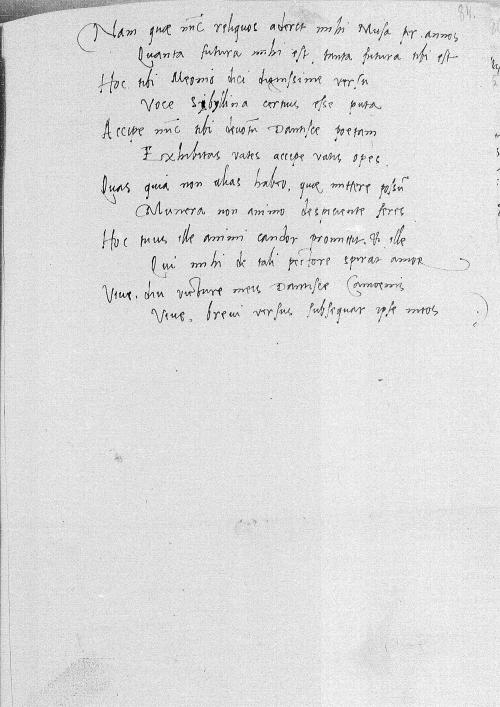 84.
Nam quæ nūc reliquos aderit mihi Musa per annos
Quanta futura mihi est, tanta futura tibi est
Hoc tibi Meonio dici dignissime versu
Voce Sibyllina certius esse puta
Accipe nūc tibi devotū Dantisce poetam
Exhibitas vates accipe vatis opes
Quas quia non alias habeo, quæ mittere possū
Munera non animo despiciente feres
Hoc tuus ille animi candor promittit, et ille
Qui mihi de tali pectore spirat amor
Vive, diu victure meis Dantisce Camoenis
Vive, brevi versus subsequar ipse meos